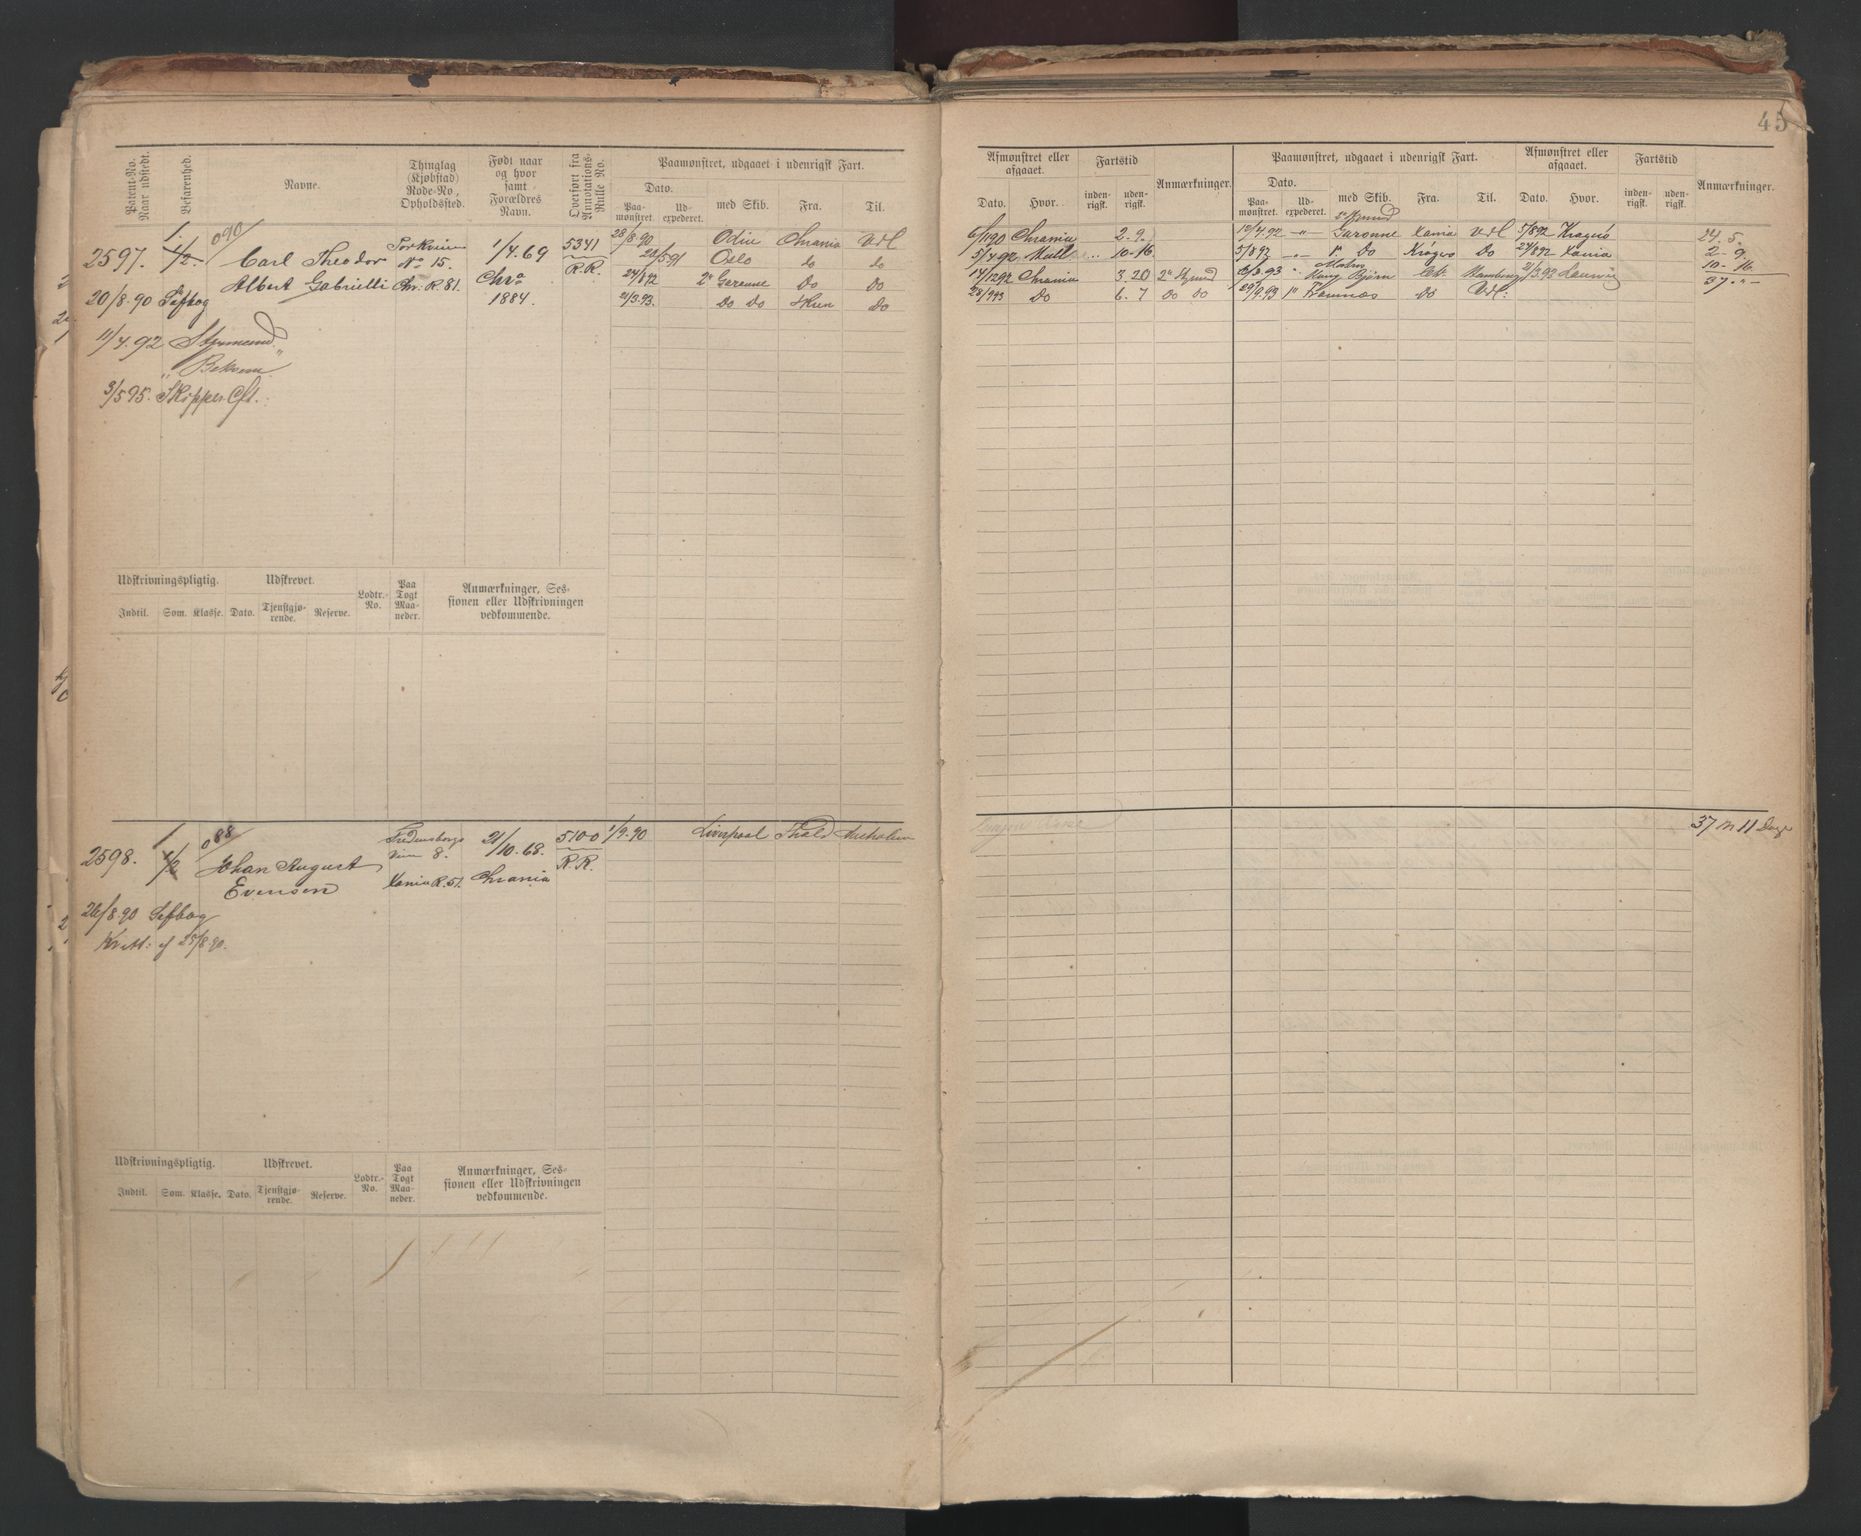 45
Patent-No. Naar udstedt.
Befarenhed.
Navne.
Thinglag (Kjøbstad) Rode-No., Opholdssted.
Født naar og hvor samt Forældres Navn.
Overført fra Annotations-Rulle No.
Paamønstret, udgaaet i udenrigsk Fart.
Dato.
Paa-mønstret.
Ud-expederet.
med Skib.
Fra.
Til.
Afmønstret eller afgaaet.
Dato.
Hvor.
Fartstid
inden-rigsk.
uden-rigsk.
Anmærkninger.
Paamønstret, udgaaet i udenrigsk Fart.
Dato.
Paa-mønstret.
Ud-expederet.
med Skib.
Fra.
Til.
Afmønstret eller afgaaet.
Dato.
Hvor.
Fartstid
inden-rigsk.
uden-rigsk.
Anmærkninger.
1.
090
2597. 1/2. Carl Theodor
Albert Gabrielli
No 15.
Chr. R. 81.
1/4.69
Chra
1884.
5341
R.R.
20/8.90 Søfbog
11/4.92 Styrmand
"Bekvem"
3/5 95. Skipper Cft.
28/8.90 Odin Chrania Vdl
28/5 91 Oslo do do
24/8 92 2" Garonne Do Do
21/3.93. Do Do Hien Do
6/11 90 Chrania 2. 9.
5/4 92 10-16
14/12 92 Chrania 3. 20 2" Stymd
28/9 93 Do 6. 7 Do Do
12/4.92 -"- Garonne Xania Vdl 5/8 92 Kragerø
5/8 92 -"- 1" Do Krøgerø Do 24/8 92 Xania
Bjørn Hamburg 21/3.93
29/9.93 1" Framnæs Do Vdl:
24. 5.
2- 9.
10- 16
37 " -
Udskrivningspligtig.
Indtil.
Som.
Klasse.
Udskrevet.
Dato.
Tjenstgjø-rende.
Reserve.
Lodtr.-No.
Paa Togt Maa-neder.
Anmærkninger, Ses-
sionen eller Udskrivningen
vedkommende.
1
088
2598. 1/2 Johan August
Evensen
Fredensborgv
veien 8.
Xania R. 51.
21/10.68.
Chrania
5100
R.R.
1/9.90 Liverpool
37 M 11 Dage
26/8 90 Søfbog
Kvitt: af 25/8 90.
Udskrivningspligtig.
Indtil.
Som.
Klasse.
Udskrevet.
Dato.
Tjenstgjø-rende.
Reserve.
Lodtr.-No.
Paa Togt Maa-neder.
Anmærkninger, Ses-
sionen eller Udskrivningen
vedkommende.